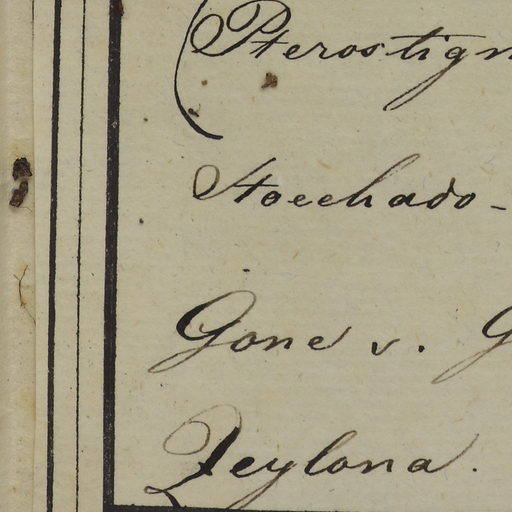 (Pterostign
Stoechado-
Gone v. G
Zeylona.